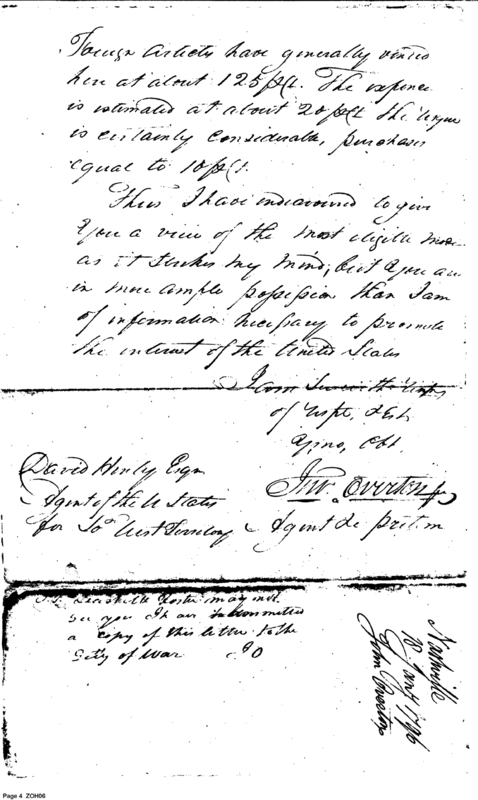 Foreign Articles have generally
here at about 125 pCt. The expence
is estimated at about 20 pCt the
is certainly considerable, purchases
equal to 10 pCt.
Thus I have endeavoured to give
you a view of the most eligible mode
as it strikes my mind; but you are
in more ample possession than I am
of information necessary to promote
the interest of the United States
I am
of respt. & Est.
Obt.
David Henly Esqr
Agent of the U States
for So West Territory
Jno. Overton
Agent
may not
see you I have transmitted
a copy of this letter to the
Secty of War J O
Nashville
10 Jany 1796
John Overton
Page 4 ZOH06